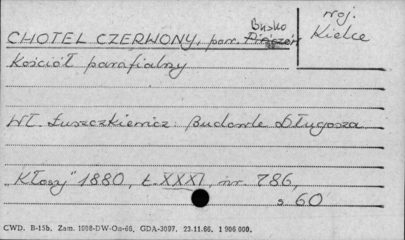 woj.
Kielce
Busko
CHOTEL CZERWONY, pow. Pińczów
Kościół parafialny
Wł. Łuszczkiewicz: Budowle Długosza
„Kłosy" 1880, t. XXXI, nr. 786,
s 60
CWD. B-15b. Zam. 1098-DW-Oo-66. GDA-3097. 23.11.66. 1 900 000.